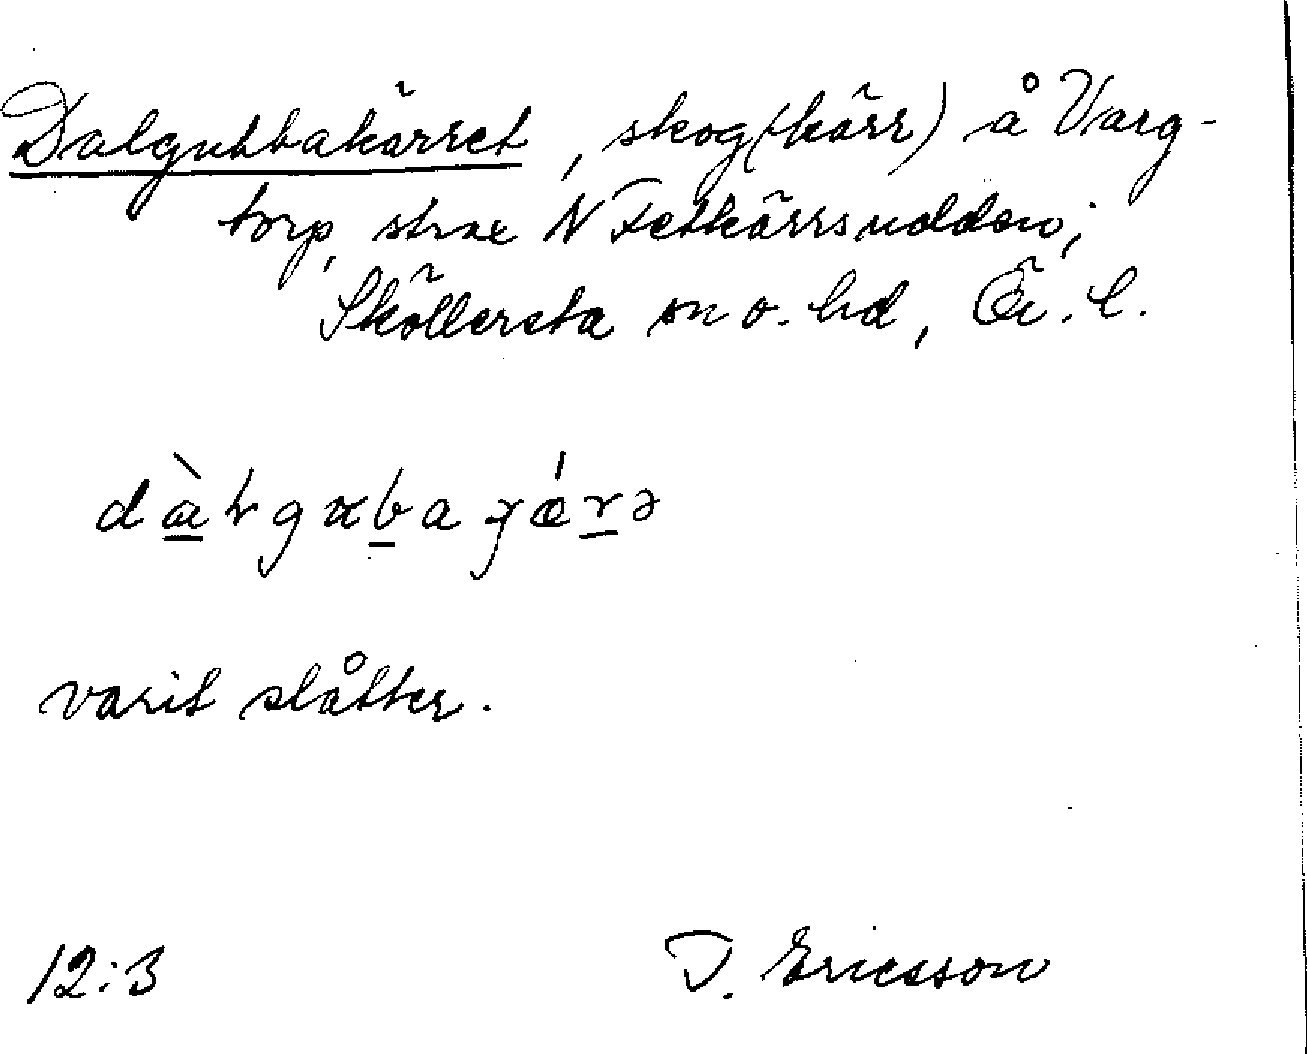 Dalgubbakärret, skog(kärr) å Varg-
torp, strax N Fetkärrsudden;
Sköllersta sn o. hd, Ör. l.
varit slåtter.
12:3 T. Ericsson